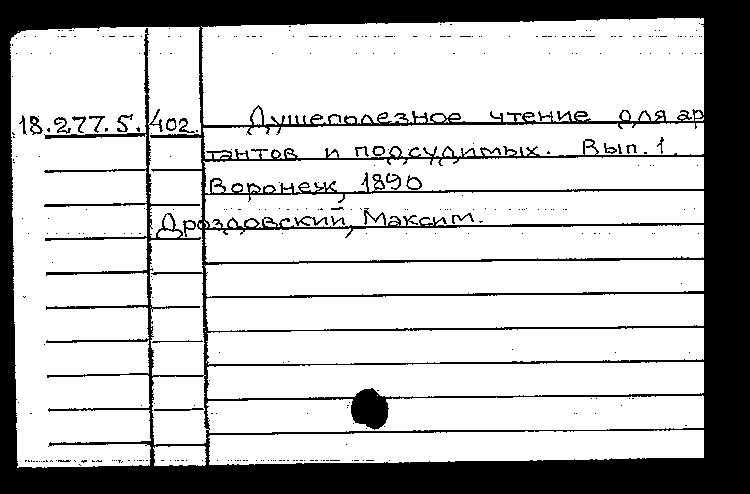 18.277.5.402. Душеполезное чтение для ар
тантов и подсудимых. Вып. 1.
Воронеж, 1890
Дроздовский, Максим.